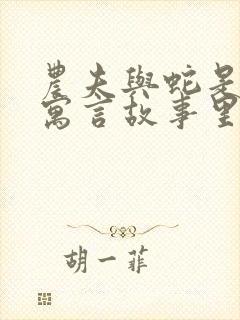 農夫與蛇是
寓言故事里
胡一菲